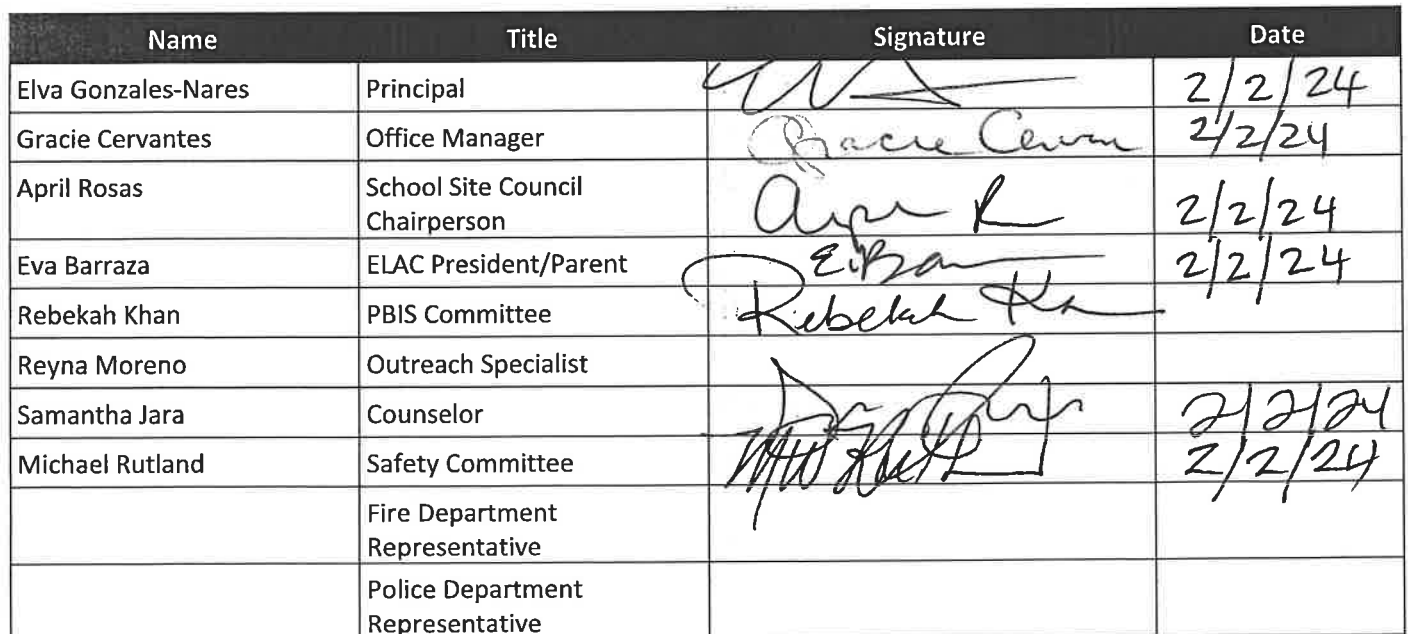 Name Title Signature Date
Elva Gonzales-Nares Principal 2/2/24
Gracie Cervantes Office Manager Gracie 2/2/24
April Rosas School Site Council
Chairperson 2/2/24
Eva Barraza ELAC President/Parent 2/2/24
Rebekah Khan PBIS Committee Rebekah
Reyna Moreno Outreach Specialist
Samantha Jara Counselor 2/2/24
Michael Rutland Safety Committee 2/2/24
Fire Department
Representative
Police Department
Representative